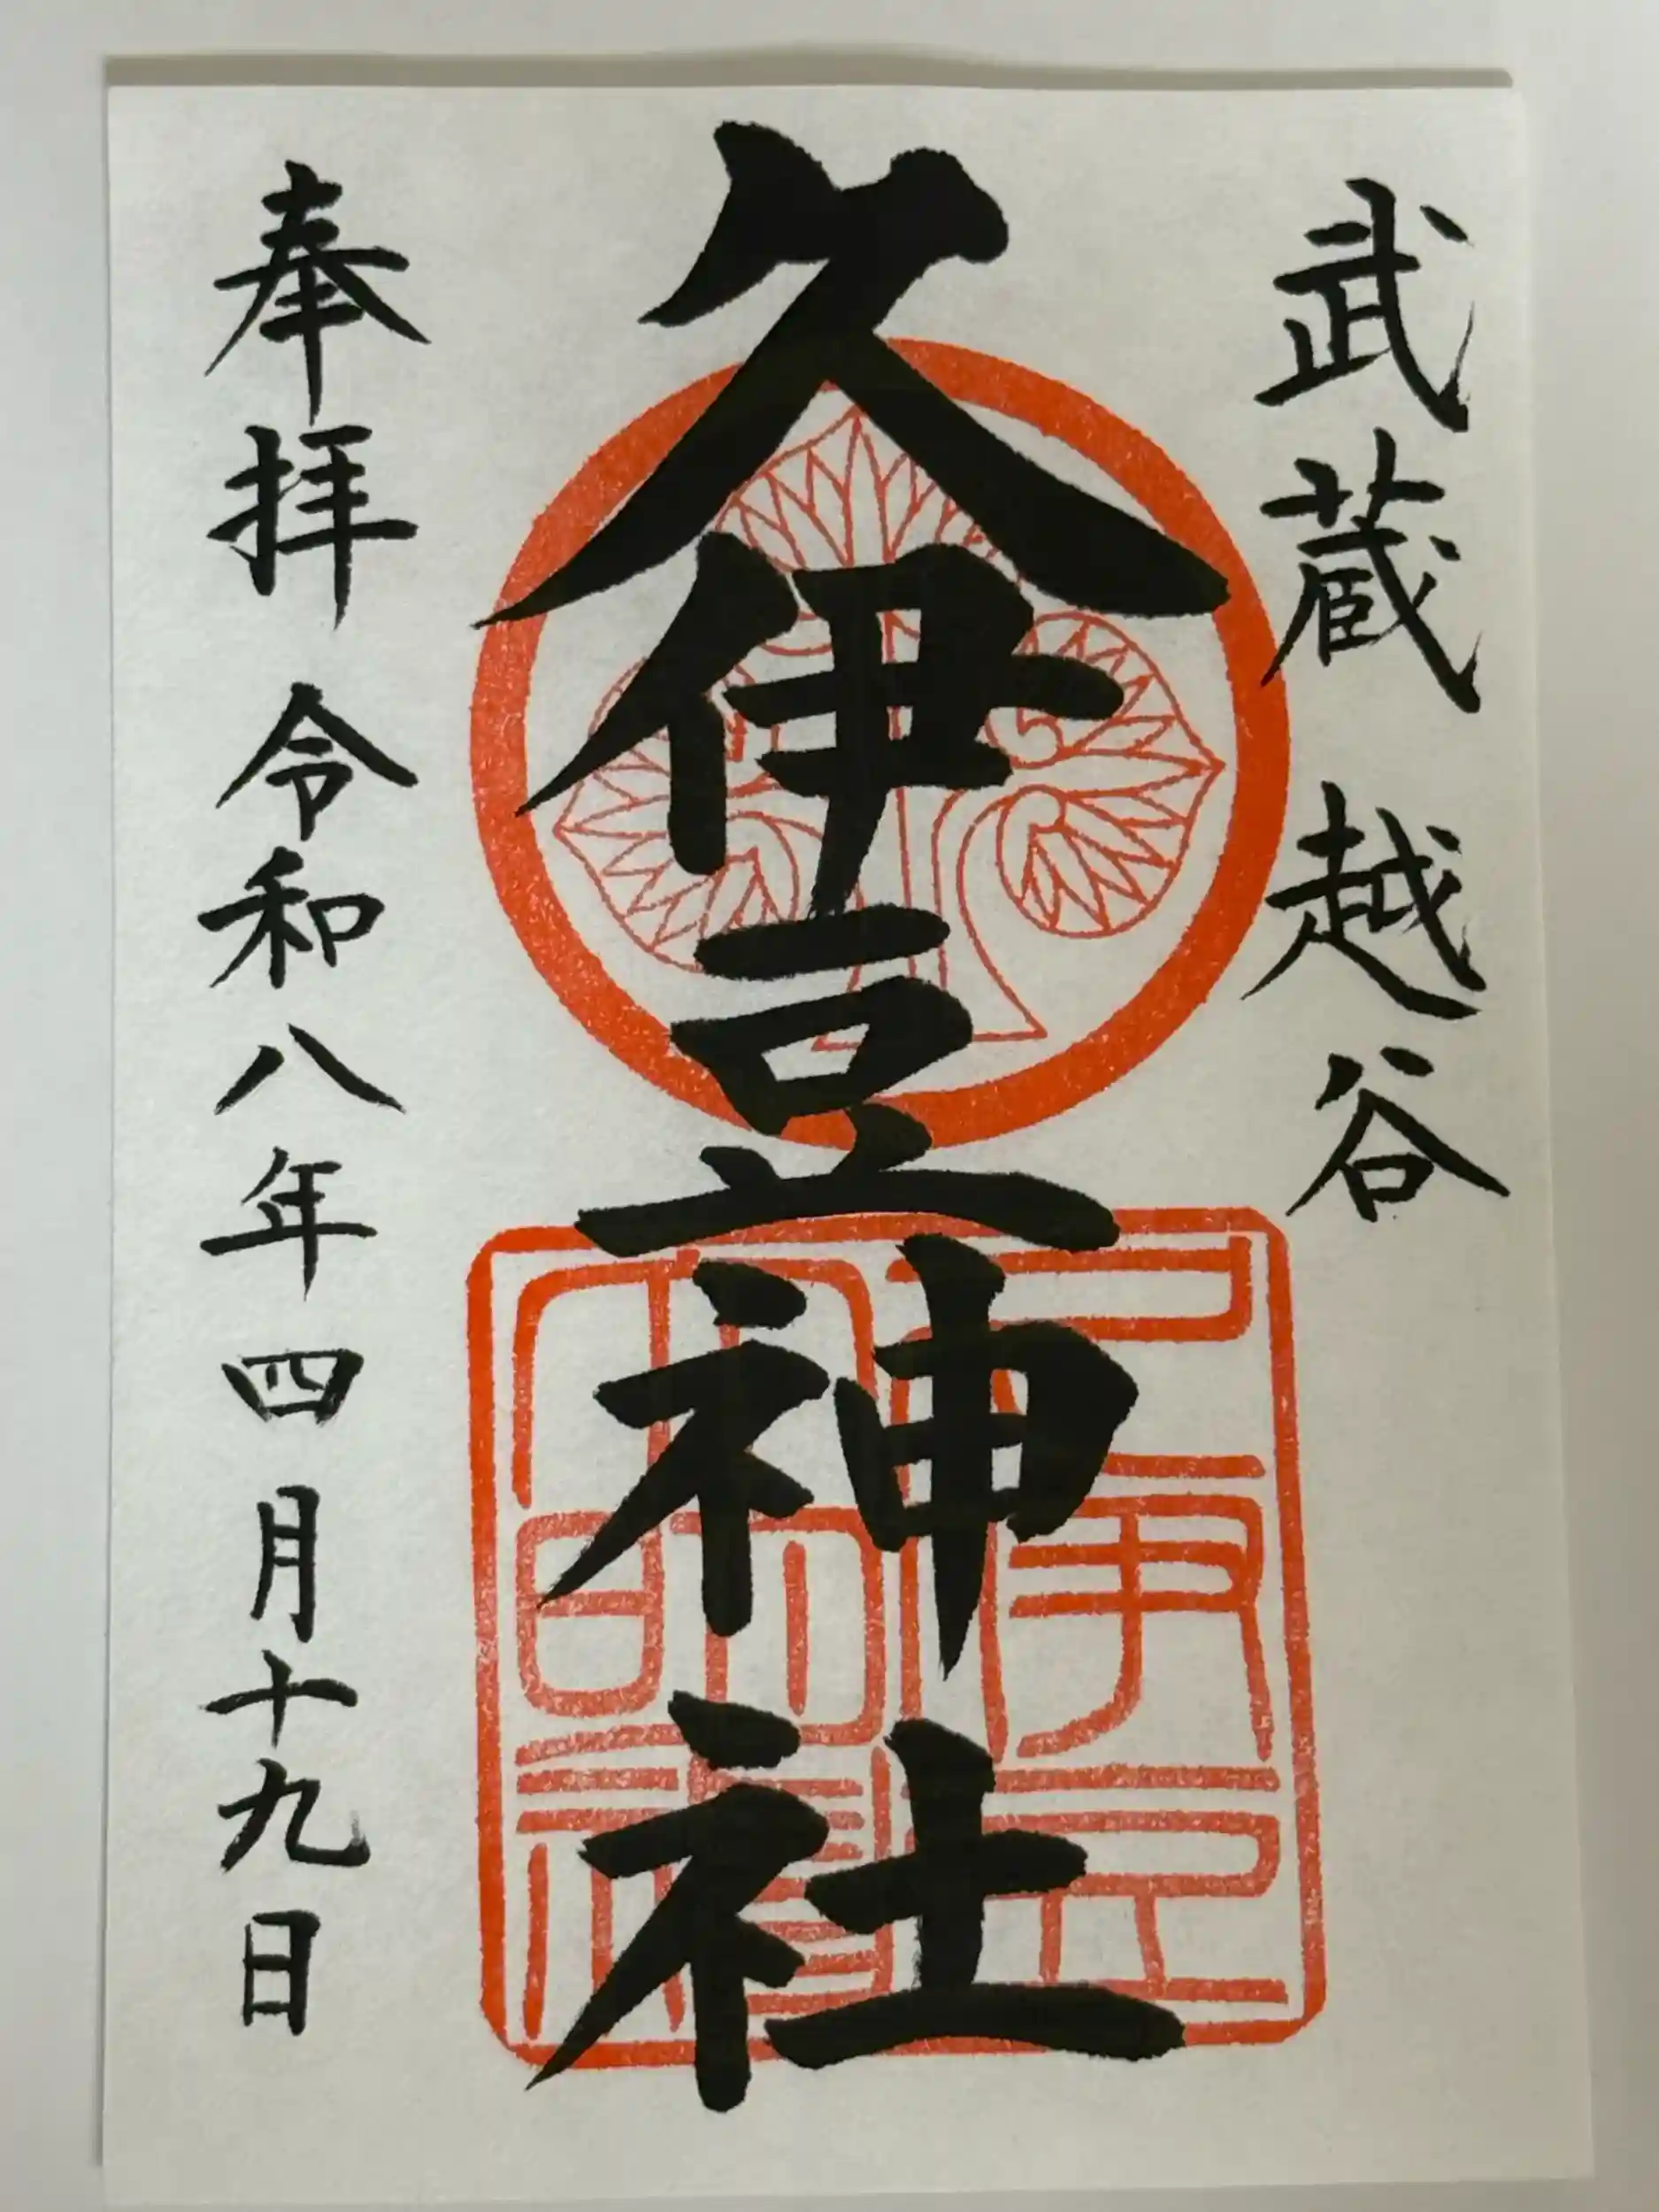 武蔵 越谷
久伊豆神社
奉拝 令和八年四月十九日